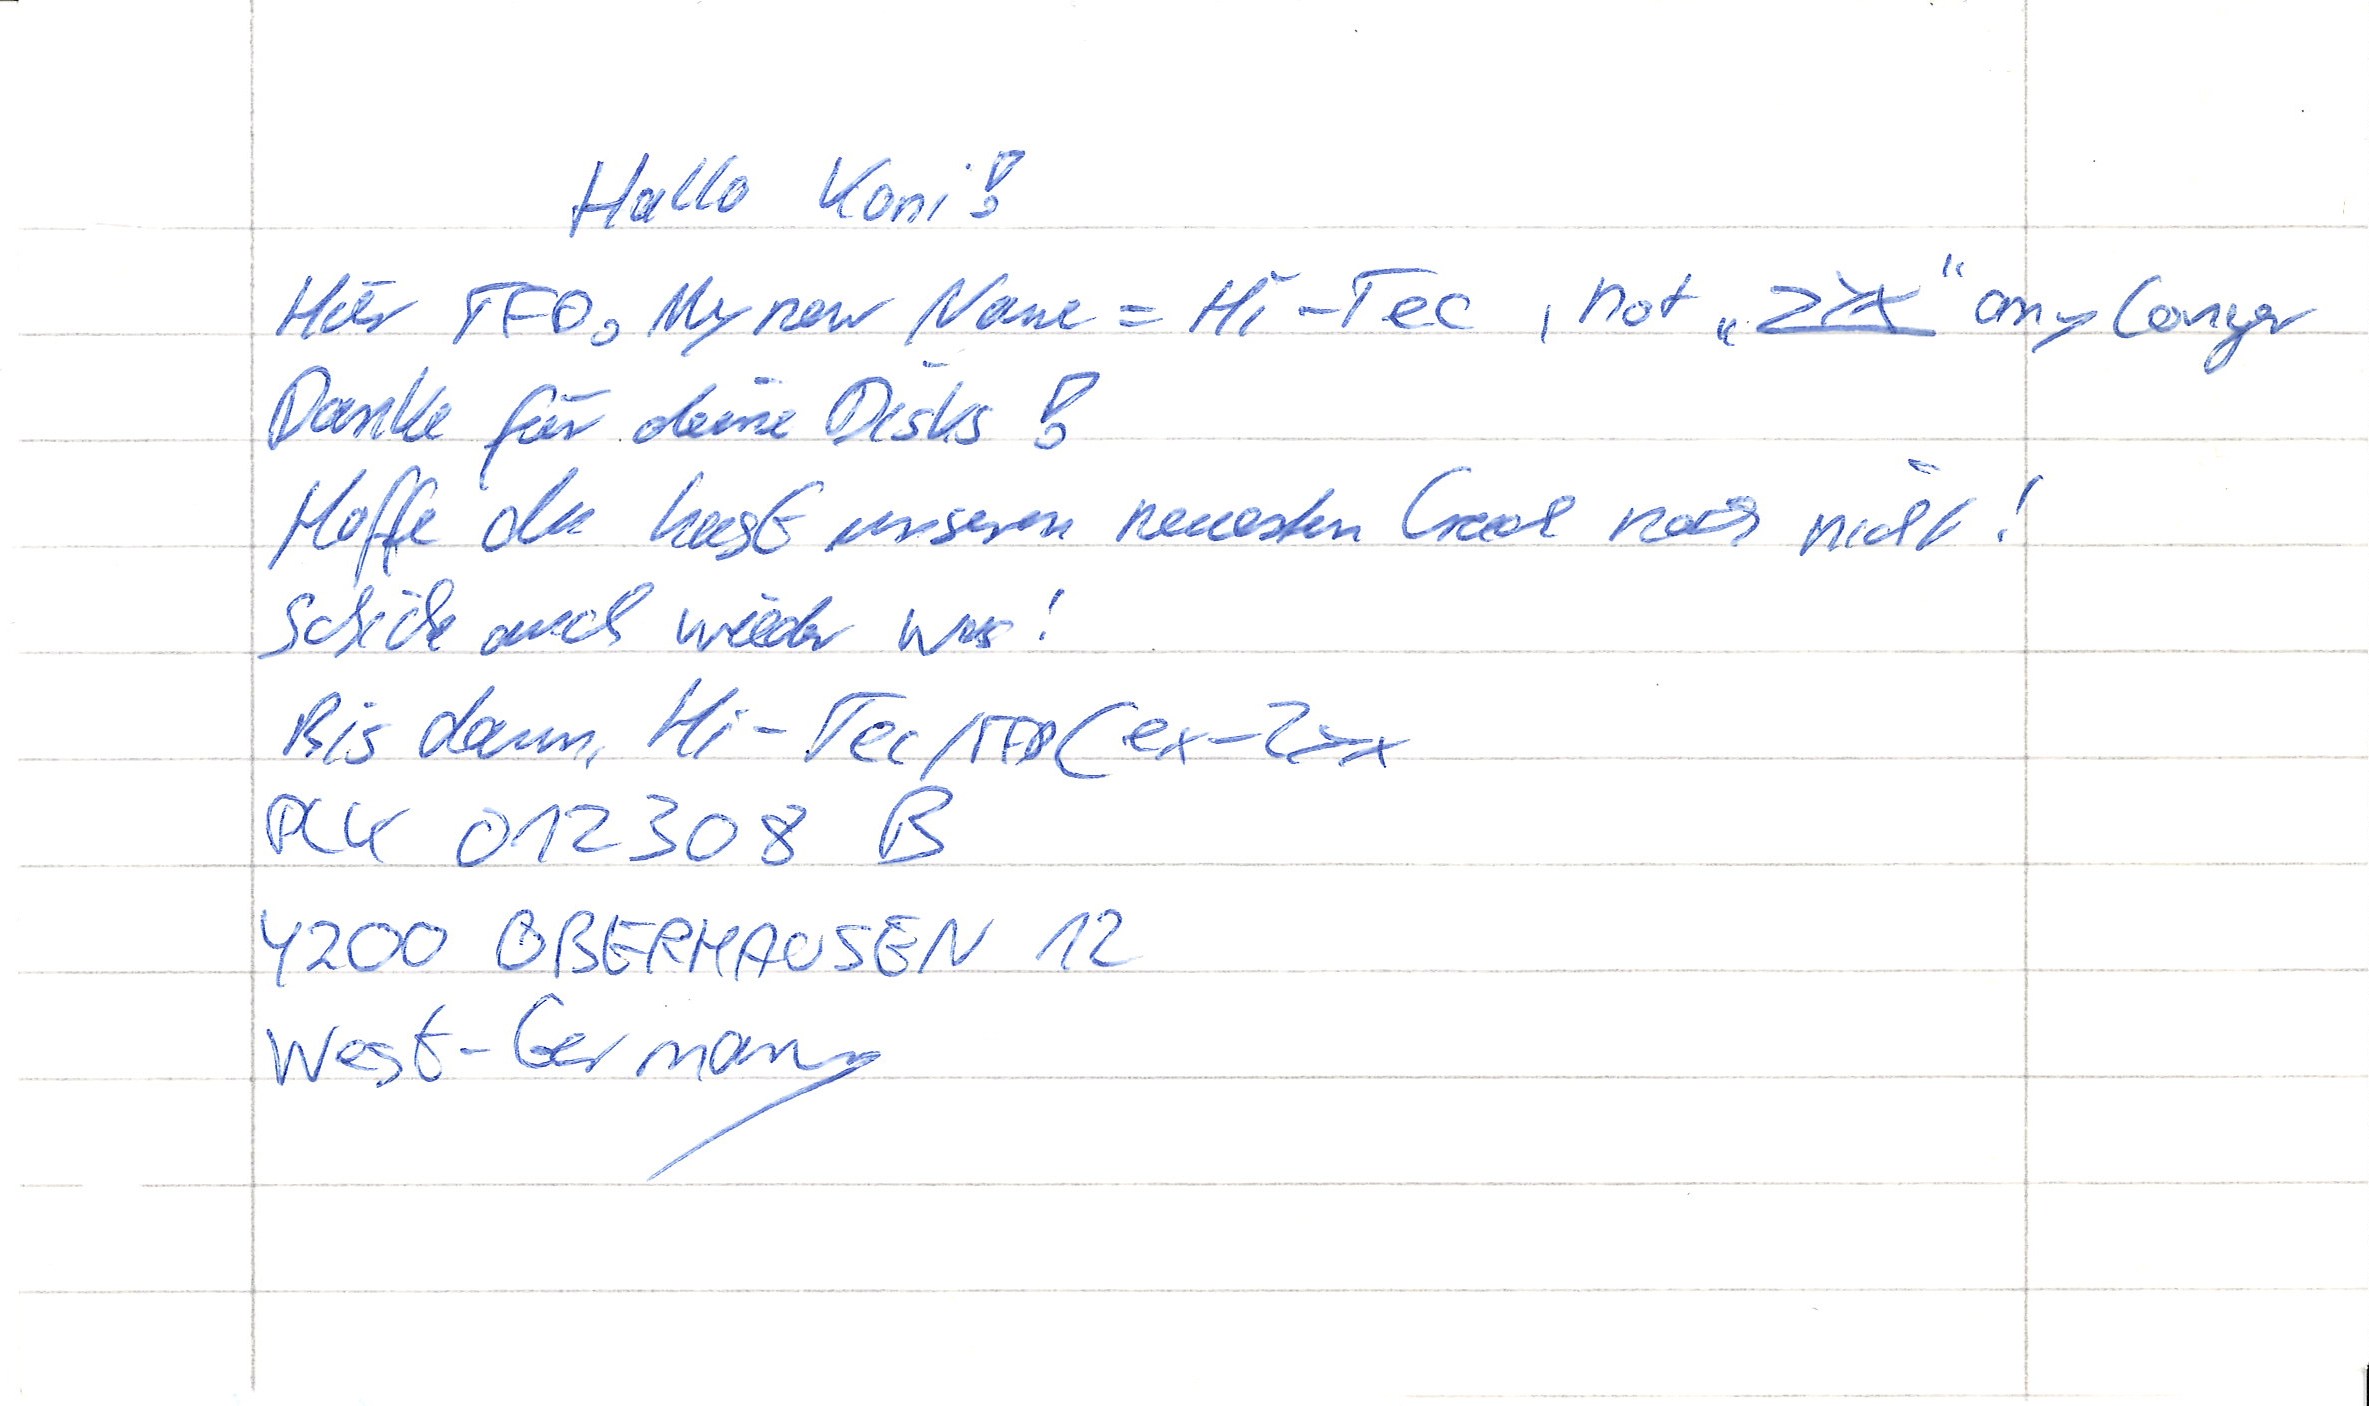 Hallo Koni!
Hier TFO. My new Name = Hi-Tec, not „Zyx“ any longer
Danke für deine Disks!
Hoffe du hast unseren neuesten Crack noch nicht!
Schick auch wieder was!
Bis dann, Hi-Tec/TFO (ex-Zyx
PLK 012308 B
4200 OBERHAUSEN 12
West-Germany